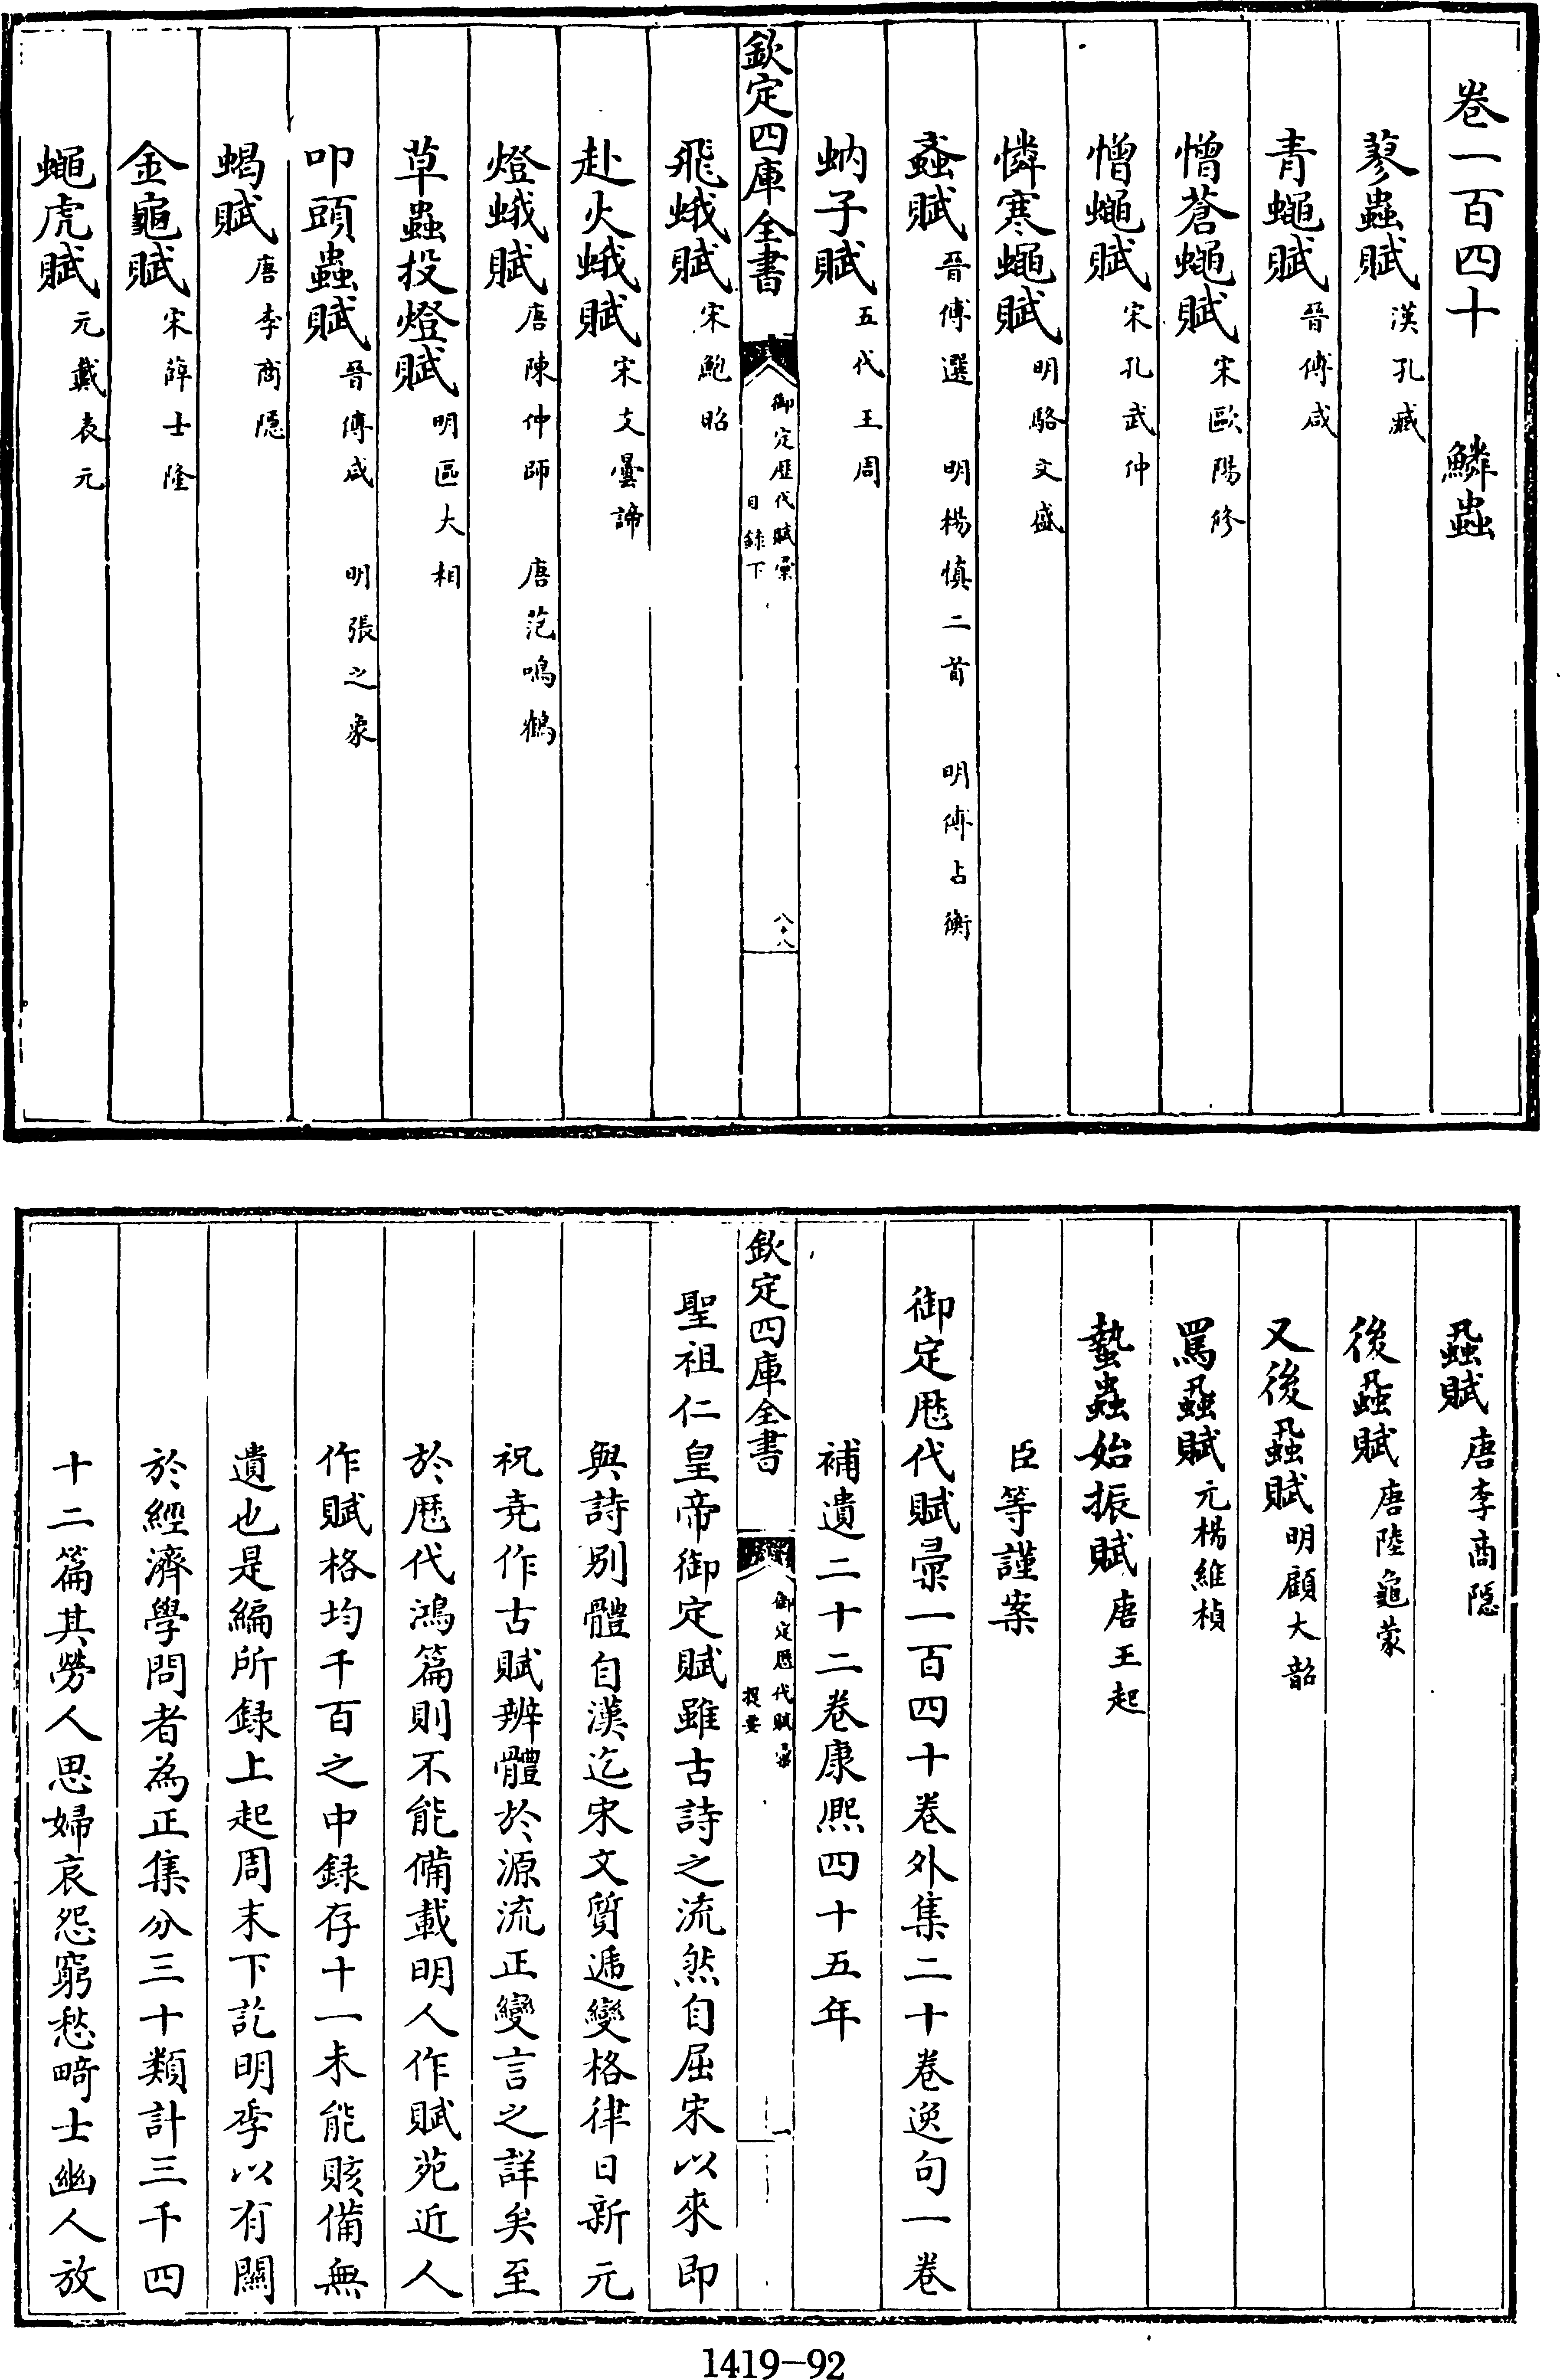 卷一百四十　鱗蟲
蓼蟲賦 漢孔臧
青蠅賦 晉傅咸
憎蒼蠅賦 宋歐陽修
憎蠅賦 宋孔武仲
憐寒蠅賦 明駱文盛
蚉賦 晉傅選　明楊慎二首　明傅占衡
蚋子賦 五代王周
欽定四庫全書
御定歷代賦彙
目錄下
八十八
飛蛾賦 宋鮑昭
赴火蛾賦 宋支曇諦
燈蛾賦 唐陳仲師　唐范鳴鶴
草蟲投燈賦 明區大相
叩頭蟲賦 晉傅咸　明張之象
蝎賦 唐李商隱
金龜賦 宋薛士隆
蠅虎賦 元戴表元
蝨賦 唐李商隱
後蝨賦 唐陸龜蒙
又後蝨賦 明顧大韶
罵蝨賦 元楊維楨
蟄蟲始振賦 唐王起
臣等謹案
御定歷代賦彙一百四十卷外集二十卷逸句一卷
補遺二十二卷康熙四十五年
欽定四庫全書
御定歷代賦彙
提要
一
聖祖仁皇帝御定賦雖古詩之流然自屈宋以來即
與詩別體自漢迄宋文質遞變格律日新元
祝堯作古賦辨體於源流正變言之詳矣至
於歷代鴻篇則不能備載明人作賦苑近人
作賦格均千百之中錄存十一未能賅備無
遺也是編所錄上起周末下訖明季以有關
於經濟學問者為正集分三十類計三千四
十二篇其勞人思婦哀怨窮愁畸士幽人放
1419-92